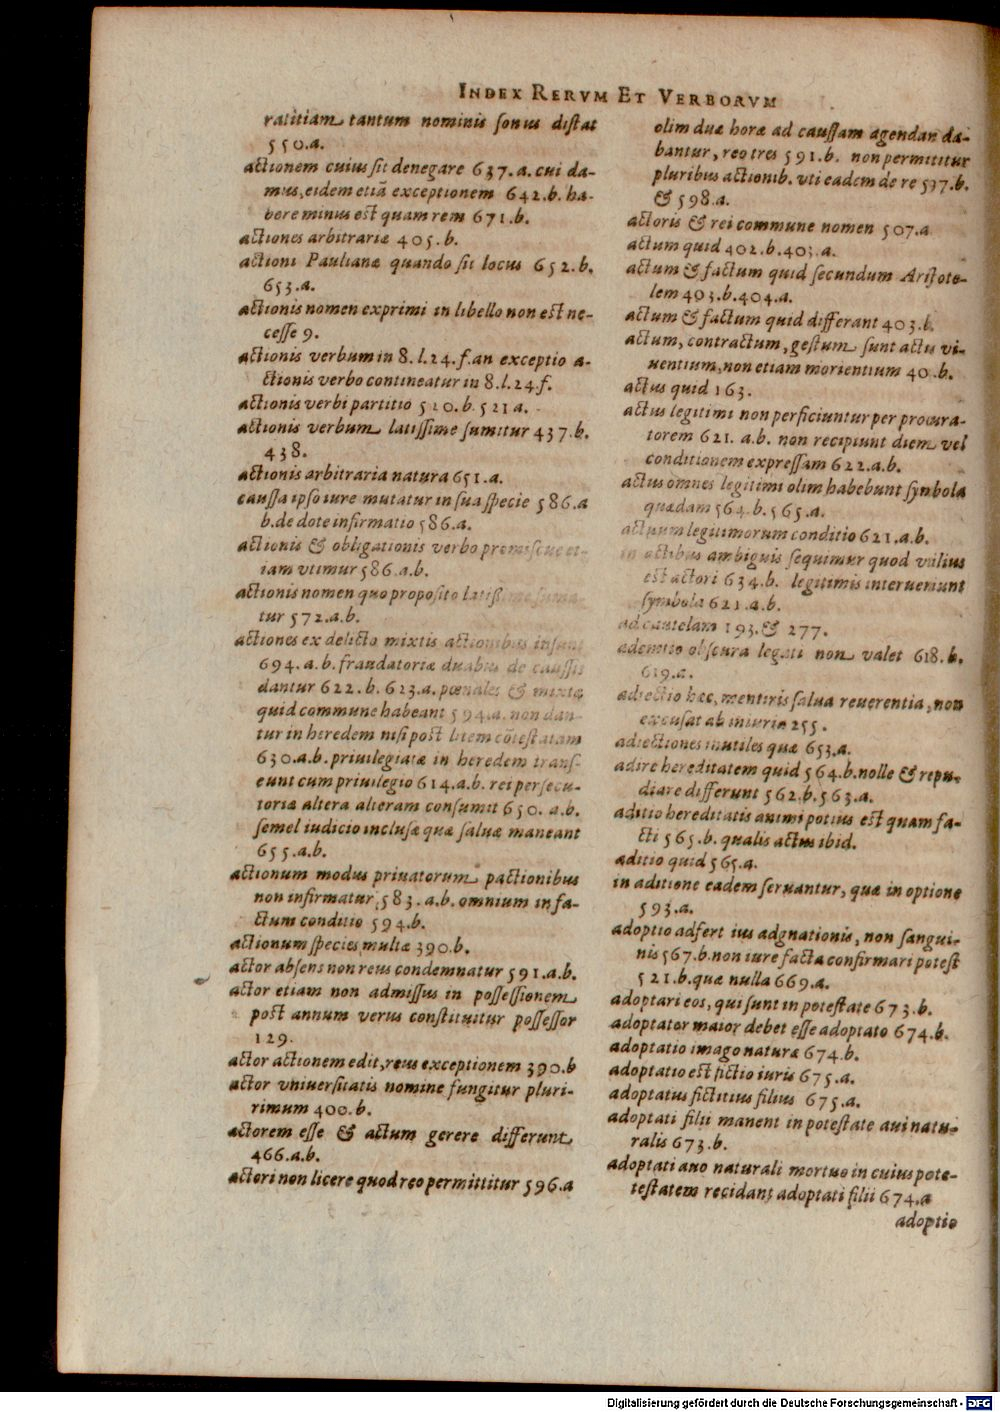 INDEX RERVM ET VERBORVM
ratitiam tantum nominis sonus distat
550.a.
actionem cuius sit denegare 637.a. cui da-
mus, eidem etiã exceptionem 642.b. ha-
bere minus est quam rem 671.b.
actiones arbitrariæ 405.b.
actioni Paulianæ quando sit locus 652.b.
653.a.
actionis nomen exprimi in libello non est ne-
cesse 9.
actionis verbum in 8.l.24.f. an exceptio a-
ctionis verbo contineatur in 8.l.24.f.
actionis verbi partitio 520.b.521a.
actionis verbum latissime sumitur 437.b.
438.
actionis arbitraria natura 651.a.
caussa ipso iure mutatur in sua specie 586.a
b. de dote infirmatio 586.a.
actionis & obligationis verbo promiscue et-
iam vtimur 586.a.b.
actionis nomen quo proposito latiss
tur 572.a.b.
actiones ex delicto mixtis actionibus insunt
694.a.b. fraudatoriæ duabus de caussis
dantur 622.b.623.a. pœnales & mixtæ
quid commune habeant 594.a. non dan-
tur in heredem nisi post litem cõtestatam
630.a.b. priuilegiatæ in heredem trans-
eunt cum priuilegio 614.a.b. rei persecu-
toriæ altera alteram consumit 650. a.b.
semel iudicio inclusæ quæ saluæ maneant
655.a.b.
actionum modus priuatorum pactionibus
non infirmatur 583.a.b. omnium in fa-
ctum conditio 594.b.
actionum species multæ 390.b.
actor absens non reus condemnatur 591.a.b.
actor etiam non admissus in possessionem
post annum verus constituitur possessor
129.
actor actionem edit, reus exceptionem 390.b
actor vniuersitatis nomine fungitur pluri-
rimum 400.b.
actorem esse & actum gerere differunt
466.a.b.
actori non licere quod reo permittitur 596.a
olim duæ horæ ad caussam agendan da-
bantur, reo tres 591.b. non permititur
pluribus actionib. vti eadem de re 597.b.
& 598.a.
actoris & rei commune nomen 507.a
actum quid 402.b.403.a.
actum & factum quid secundum Aristote-
lem 403.b.404.a.
actum & factum quid differant 403.b.
actum, contractum, gestum sunt actus vi-
uentium, non etiam morientium 40 .b.
actus quid 163.
actus legitimi non perficiuntur per procura-
torem 621. a.b. non recipiunt diem vel
conditionem expressam 622.a.b.
actus omnes legitimi olim habebunt synbola
quædam 564.b.565.a.
actuum legitimorum conditio 621.a.b.
in actibus ambiguis sequimur quod vtilius
est actori 634.b. legitimis interueniunt
symbola 621.a.b.
ad cautelam 193.& 277.
ademtio obscura legati non valet 618.b.
619.a.
adiectio hæc, mentiris salua reuerentia, non
excusat ab iniuria 255.
adiectiones inutiles quæ 653.a.
adire hereditatem quid 564.b. nolle & repu-
diare differunt 562.b.563.a.
aditio hereditatis animi potius est quam fa-
cti 565.b. qualis actus ibid.
aditio quid 565.a.
in aditione eadem seruantur, quæ in optione
593.a.
adoptio adfert ius adgnationis, non sangui-
nis 567.b. non iure facta confirmari potest
521.b. quæ nulla 669.a.
adoptari eos, qui sunt in potestate 673.b.
adoptator maior debet esse adoptato 674.b.
adoptatio imago naturæ 674.b.
adoptatio est fictio iuris 675.a.
adoptatus fictitius filius 675.a.
adoptati filii manent in potestate aui natu-
ralis 673.b.
adoptati auo naturali mortuo in cuius pote-
testatem recidant adoptati filii 674.a
adoptio
Digitalisierung gefördert durch die Deutsche Forschungsgemeinschaft - DFG